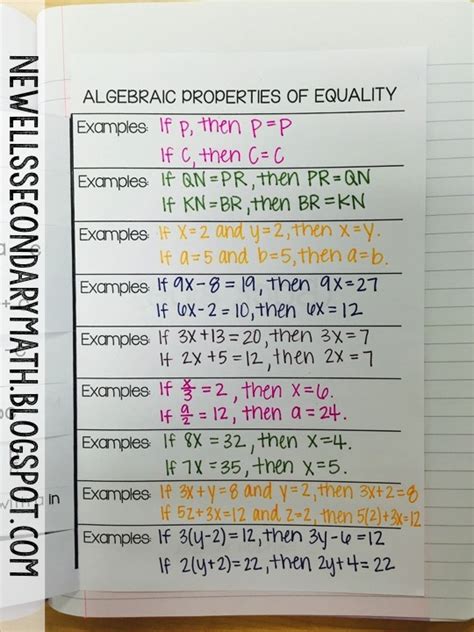 NEWELLSSECONDARYMATH.BLOGSPOT.COM
ALGEBRAIC PROPERTIES OF EQUALITY
Examples: If P, then P=P
If C, then C=C
Examples: If QN=PR, then PR=QN
If KN=BR, then BR=KN
Examples: If x=2 and y=2, then x=y.
If a=5 and b=5, then a=b.
Examples: If 9x-8=19, then 9x=27
If 6x-2=10, then 6x=12
Examples: If 3x+13=20, then 3x=7
If 2x+5=12, then 2x=7
Examples: If x/3=2, then x=6.
If a/2=12, then a=24.
Examples: If 8x=32, then x=4.
If 7x=35, then x=5.
Examples: If 3x+y=8 and y=2, then 3x+2=8
If 5z+3x=12 and z=2, then 5(2)+3x=12
Examples: If 3(y-2)=12, then 3y-6=12
If 2(y+2)=22, then 2y+4=22
in